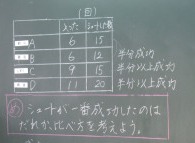 (回)
入った シュートした数
A 6 15
B 6 12 半分成功
C 9 15 半分以上成功
D 11 20 半分以上成功
め シュートが一番成功したのは
だれか、比べ方を考えよう。